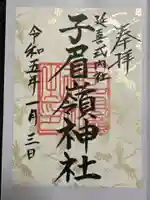 奉拝
延喜式内社
子眉嶺神社
令和五年一月三日